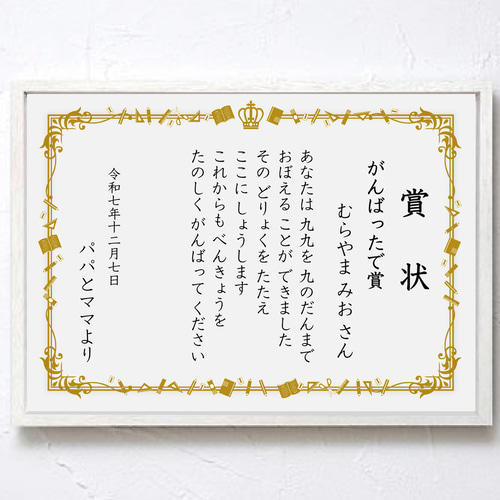 賞状
がんばったで賞
むらやま みお さん
あなたは 九九を 九のだんまで
おぼえる ことが できました
その どりょくを たたえ
ここに しょうします
これからも べんきょうを
たのしく がんばって ください
令和七年十二月七日
パパとママより